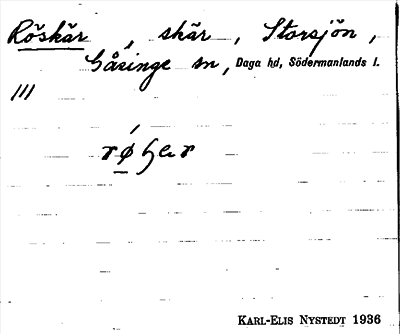 Röskär, skär, Storsjön,
Gåsinge sn, Daga hd, Södermanlands l.
III
KARL-ELIS NYSTEDT 1936